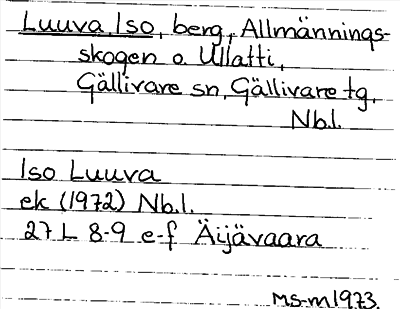 Luuva, Iso, berg, Allmännings-
skogen o. Ullatti,
Gällivare sn, Gällivare tg,
Nb.l.
Iso Luuva
ek (1972) Nb.l.
27 L 8-9 e-f Äijävaara
MS-m1973.